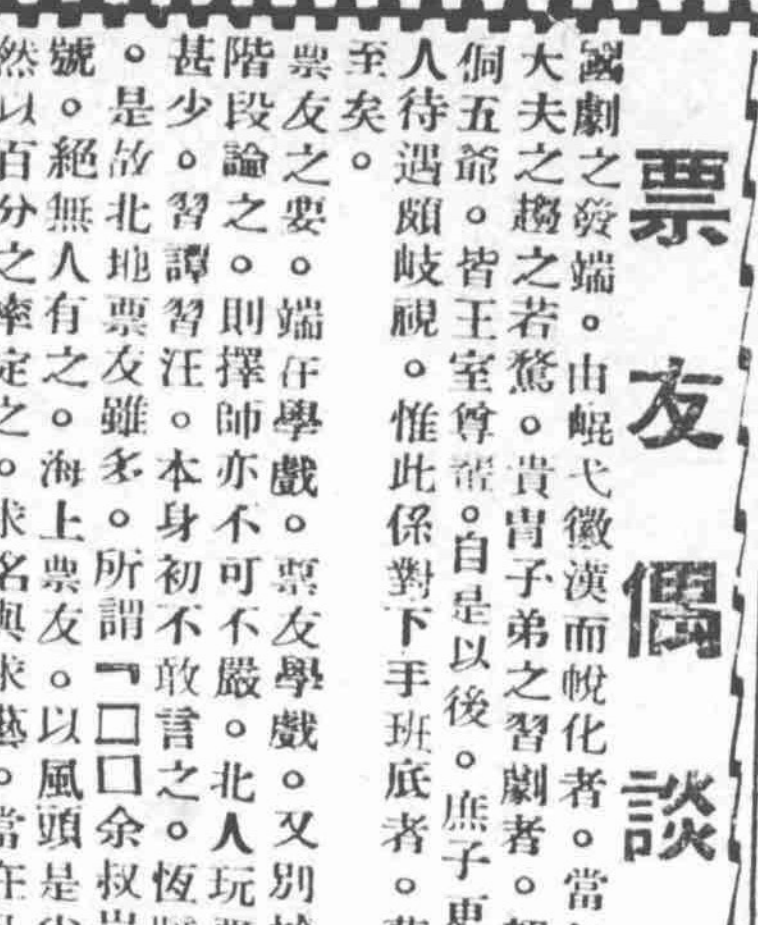 票友偶談
國劇之發端。由崐弋徽漢而蛻化者。當
大夫之趨之若鶩。貴胄子弟之習劇者。
侗五爺。皆王室尊。自是以後。庶子
人待遇頗岐視。惟此係對下手班底者。
至矣。
票友之要。端在學戲。票友學戲。又別
階段論之。則擇師亦不可不嚴。北人玩票
甚少。習譚習汪。本身初不敢言之。恆
。是故北地票友雖多。所謂『□□余叔岩
號。絕無人有之。海上票友。以風頭是
然以百分之率定之。求名與求藝。當在